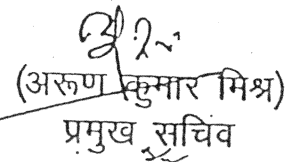 (अरूण कुमार मिश्र)
प्रमुख सचिव